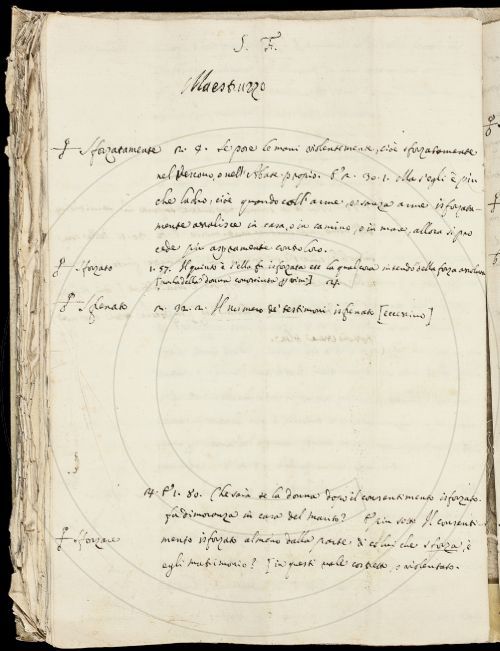 S. F.
Maestruzzo
Sforzatamente 2. 9. Se pose le mani violentemente, cioè sforzatamente
nel Vescovo, o nell'Abate proprio. E 2. 30. 1. Ma s'egli è più
che ladro, cioè quando coll'arme, o sanza arme isforzata-
mente assalisce in casa, o in camino, o in mare, allora si pro
cede più aspramente contro loro.
Sforzato 1. 57. Il quinto è s'ella fu isforzata ec. la qual cosa intendo della forza assoluta
[parla della donna]
Sfrenato 2. 32. 2. Il numero de' testimoni isfrenato [eccessivo]
E 1. 80. Che sarà se la donna dopo il consentimento isforzato
fa dimoranza in casa del marito? E più sotto Il consenti-
Sforzare mento isforzato almeno dalla parte di colui che sforza, è
egli matrimonio? [in questi vale costretto, o violentato.